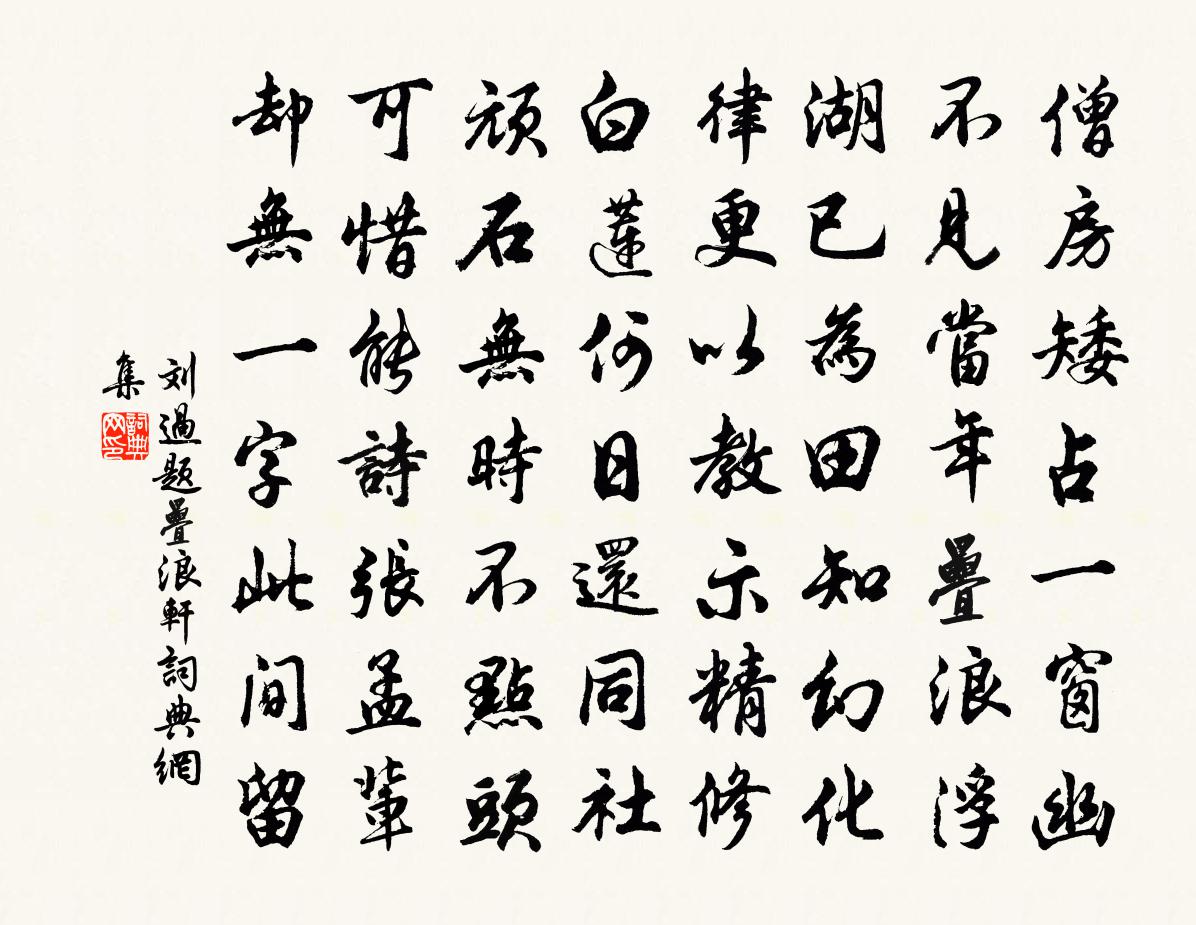 僧房矮占一窗幽
不見當年疊浪浮
湖已為田知幻化
律更以教示精修
白蓮何日還同社
頑石無時不點頭
可惜能詩張孟輩
却無一字此間留
刘過題疊浪軒詞典網
集
詞典
网印